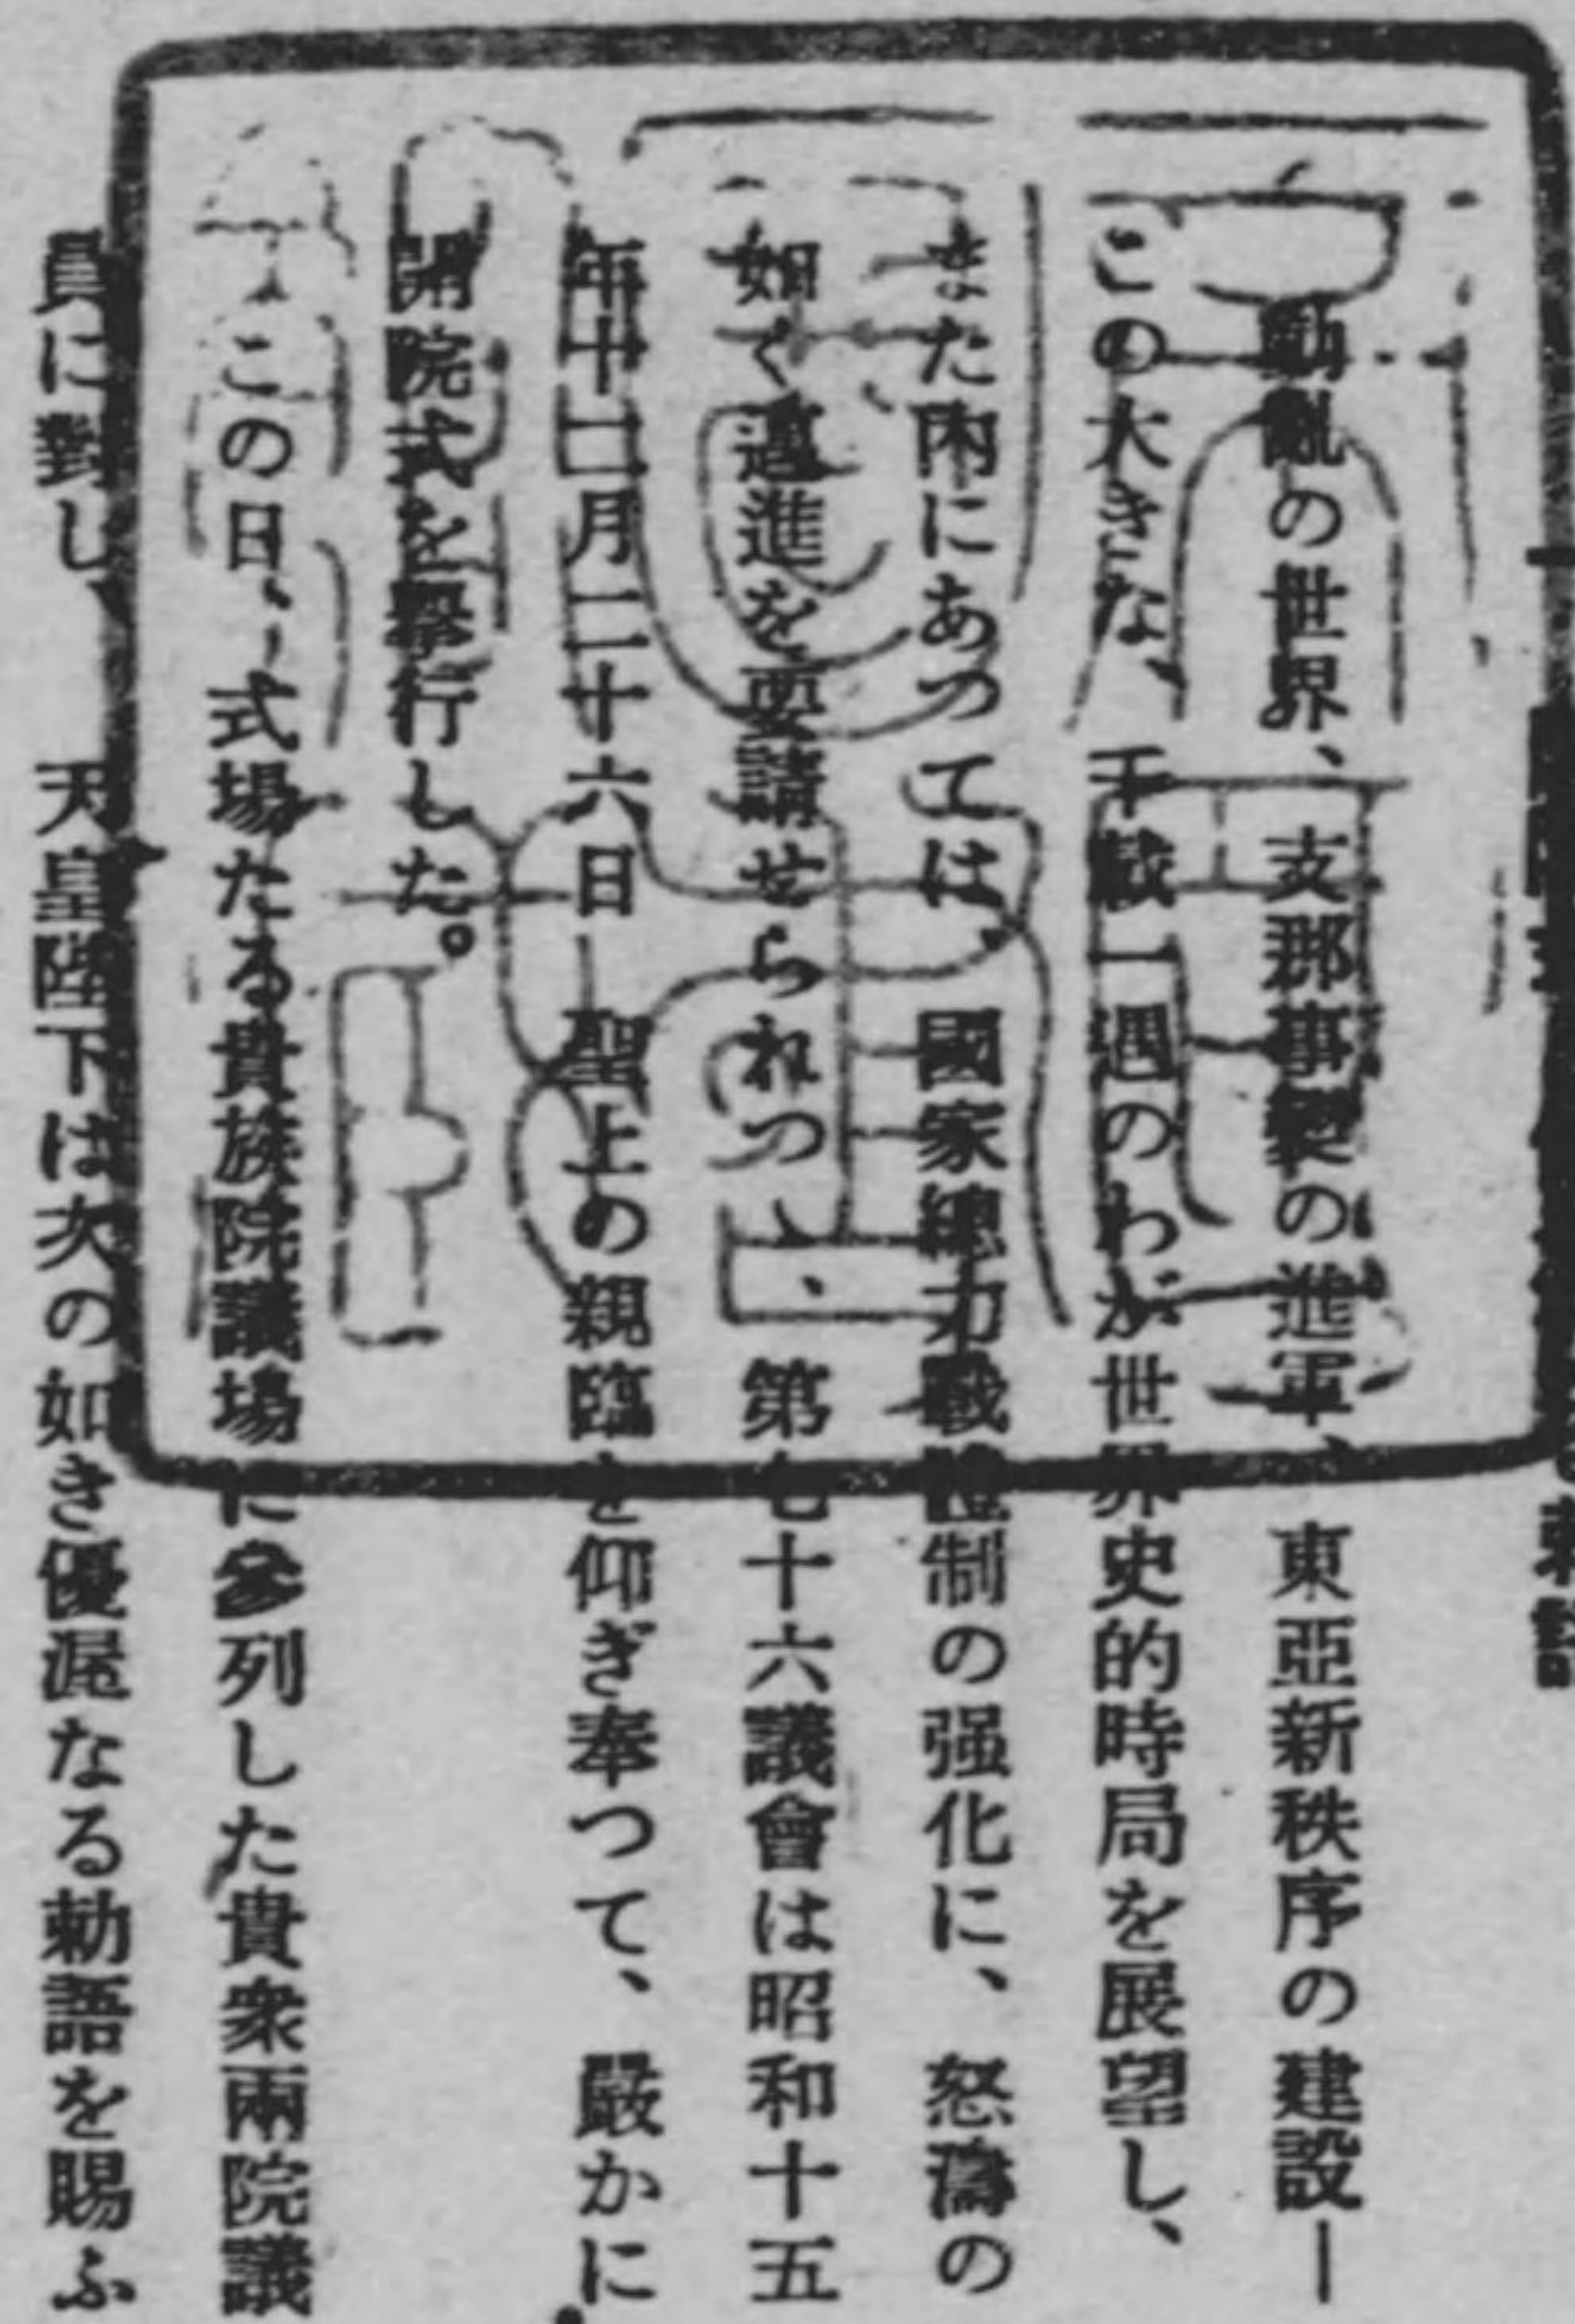 動亂の世界、支那事變の進軍、東亞新秩序の建設ー
この大きな、千載一遇のわが世界史的時局を展望し、
また内にあつては、國家總力戰體制の强化に、怒濤の
如く邁進を要請せられつゝ、第七十六議會は昭和十五
年十二月二十六日　聖上の親臨を仰ぎ奉つて、嚴かに
開院式を擧行した。
この日、式場たる貴族院議場に參列した貴衆兩院議
員に對し、　天皇陛下は次の如き優渥なる勅語を賜ふ